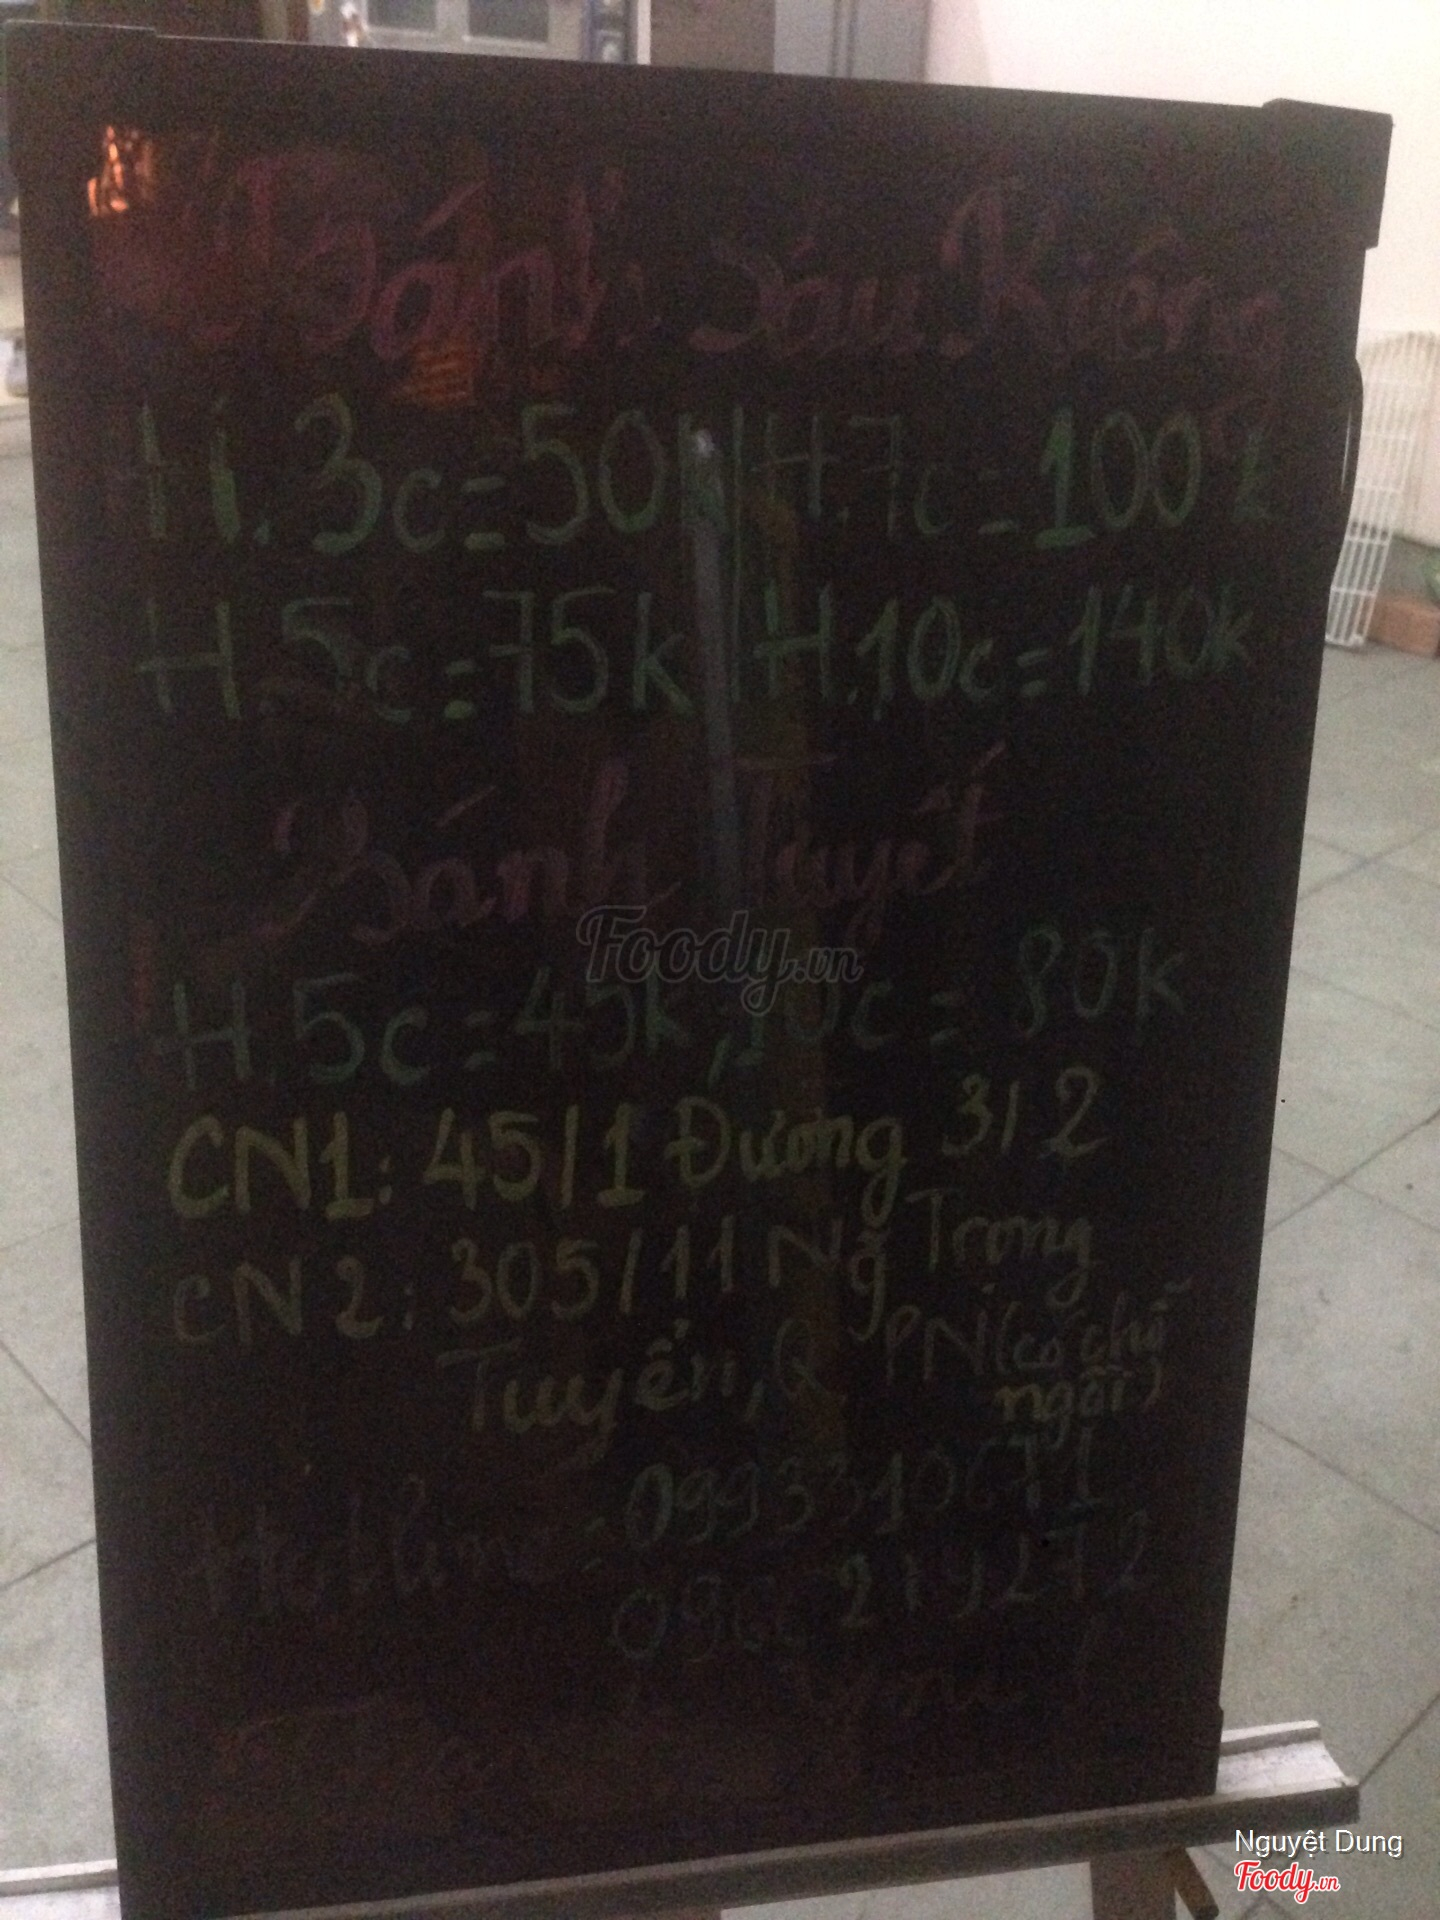 Bánh Sầu Riêng
H.3c=50k H.7c=100k
H.5c=75k H.10c=140k
Bánh Tuyết
H.5c=45k, 10c=80k
CN1: 45/1 Đường 3/2
CN2: 305/11 Ng Trọng
Tuyển, Q PN (có chỗ
ngồi)
Hotline: 0993310671
219272
you!
Foody.vn
Nguyệt Dung
Foody.vn